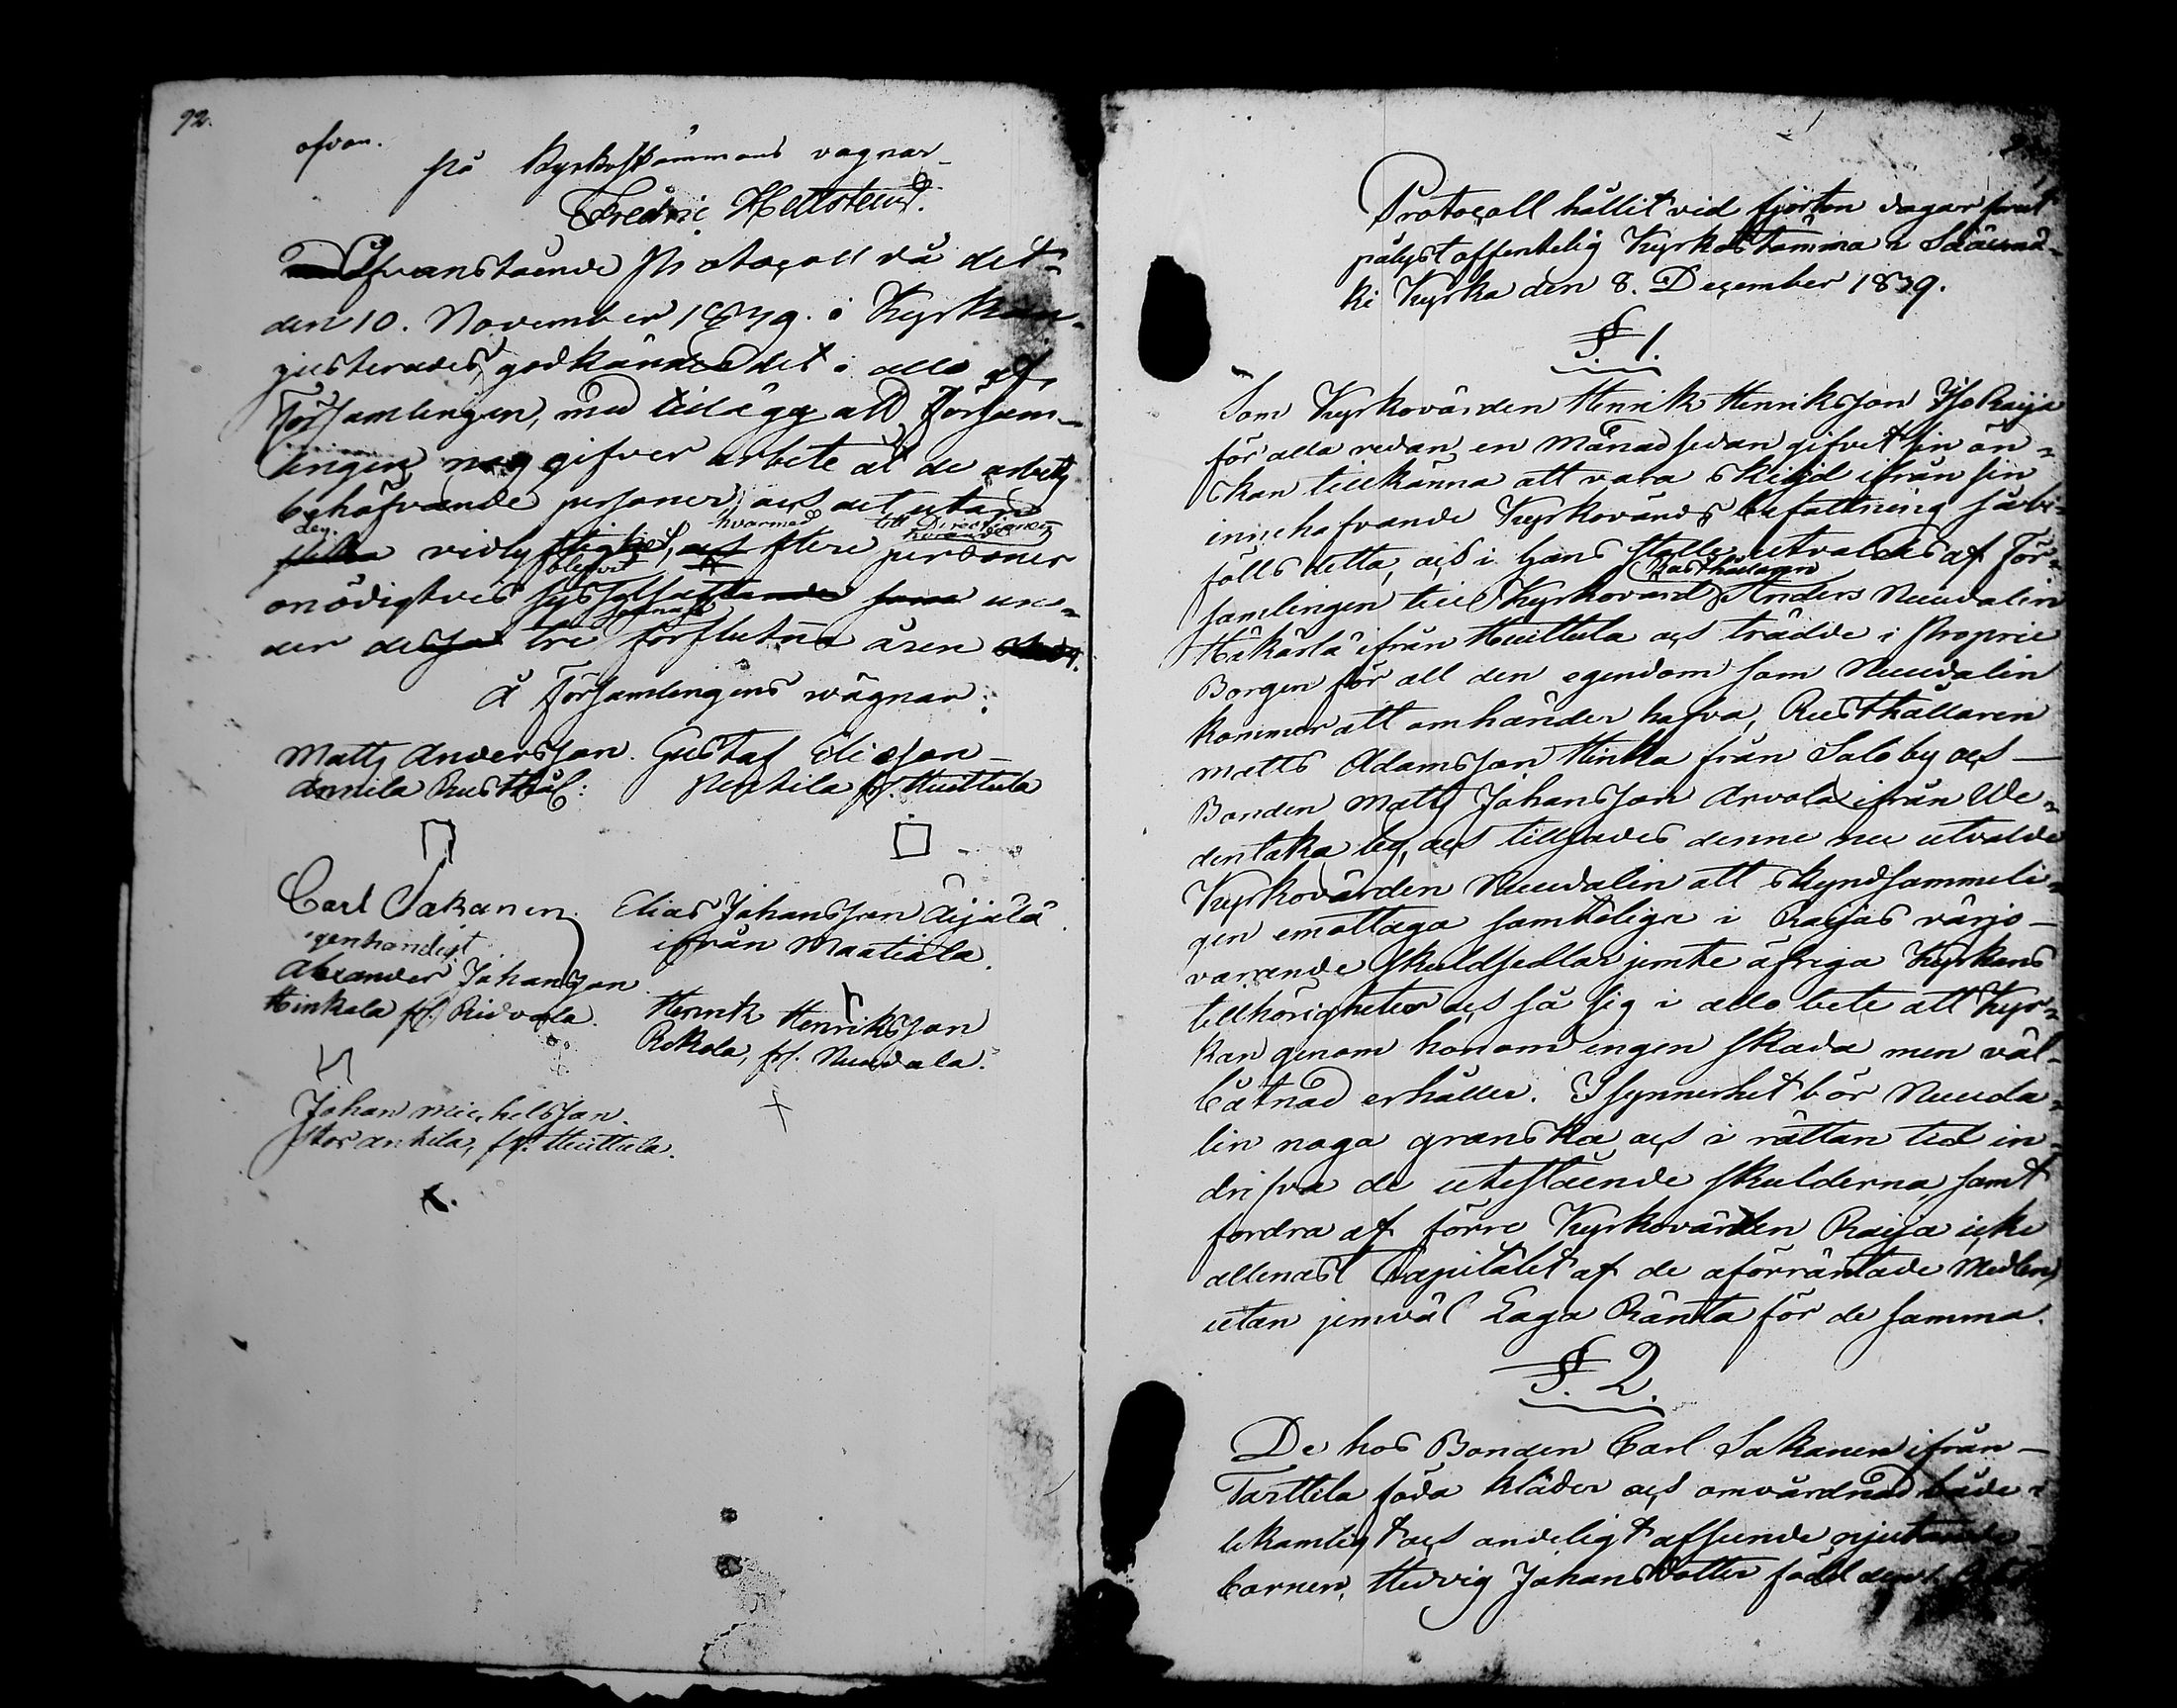 92.
ofvan.
på Kyrkostämmans vagnar
Fredric Hellsteud.
Ofvanstående Protocoll då det
den 10. November 1839. i Kyrkan
justerades, godkändes det i allo af
Församlingen, med tilägg att Försam-
lingen nog gifver arbete åt de arbets
behöfvande personer, och det utan
den hvarmed till Directionen hörande
vidlyftighet, flere personer
blefvit
onödigtvis sysselsatta un-
sednast
der de tre förflutna åren
å Församlingens wägnar:
Matts Andersson Gustaf Elieson
Annila Rusthål: Penkila fr. Huittula
Carl Sakanen. Elias Johansson Äijälä
egenhändigt ifrån Maatiala.
Alexander Johansson
Hinkala fr. Ridvala. Henrik Henriksson
Rekola, fr. Nuudala.
Johan Michelsson.
Stor Anhila, fr. Huittula.
Protocoll hållit vid fjorton dagar förut
pålyst offentelig Kyrkostämma i Sääxmä-
ki Kyrka den 8. December 1839.
§. 1.
Som Kyrkovärden Henrik Henriksson Iso Raija
för alla redan en månad sedan gifvit sin ön-
skan tillkänna att vara skiljd ifrån sin
innehafvande Kyrkovärds befattning så bi-
fölls detta, och i hans ställe utvaldes af För-
Rusthållaren
samlingen till Kyrkovärd Anders Nuudalin
Häkärlä ifrån Huittula och trädde i Proprie
Borgen för all den egendom som Nuudalin
kommer att om händer hafva, Rusthållaren
Matts Adamsson Hinkka från Saloby och
Bonden Matts Johansson Arvola ifrån We-
dentaka by, och tillsades denne nu utvalde
Kyrkovärden Nuudalin att skyndsammeli-
gen emottaga samtelige i Raijas värjo
varande skuldsedlar jemte öfriga Kyrkans
tillhörigheter och så sig i allo bete att Kyr-
kan genom honom ingen skada men väl
båtnad erhåller. I synnerhet bör Nuuda-
lin noga granska och i rättan tid in-
drifva de utestående skulderna, samt
fordra af förre Kyrkovärden Raija icke
allenast Capitalet af de oförräntade Medlen,
utan jemväl Laga Ränta för de samma.
§. 2.
De hos Bonden Carl Sakanen ifrån
Tarttila föda kläder och omvårdnad både i
lekamligt och andeligt afseende njutande
barnen, Hedvig Johansdotter född den